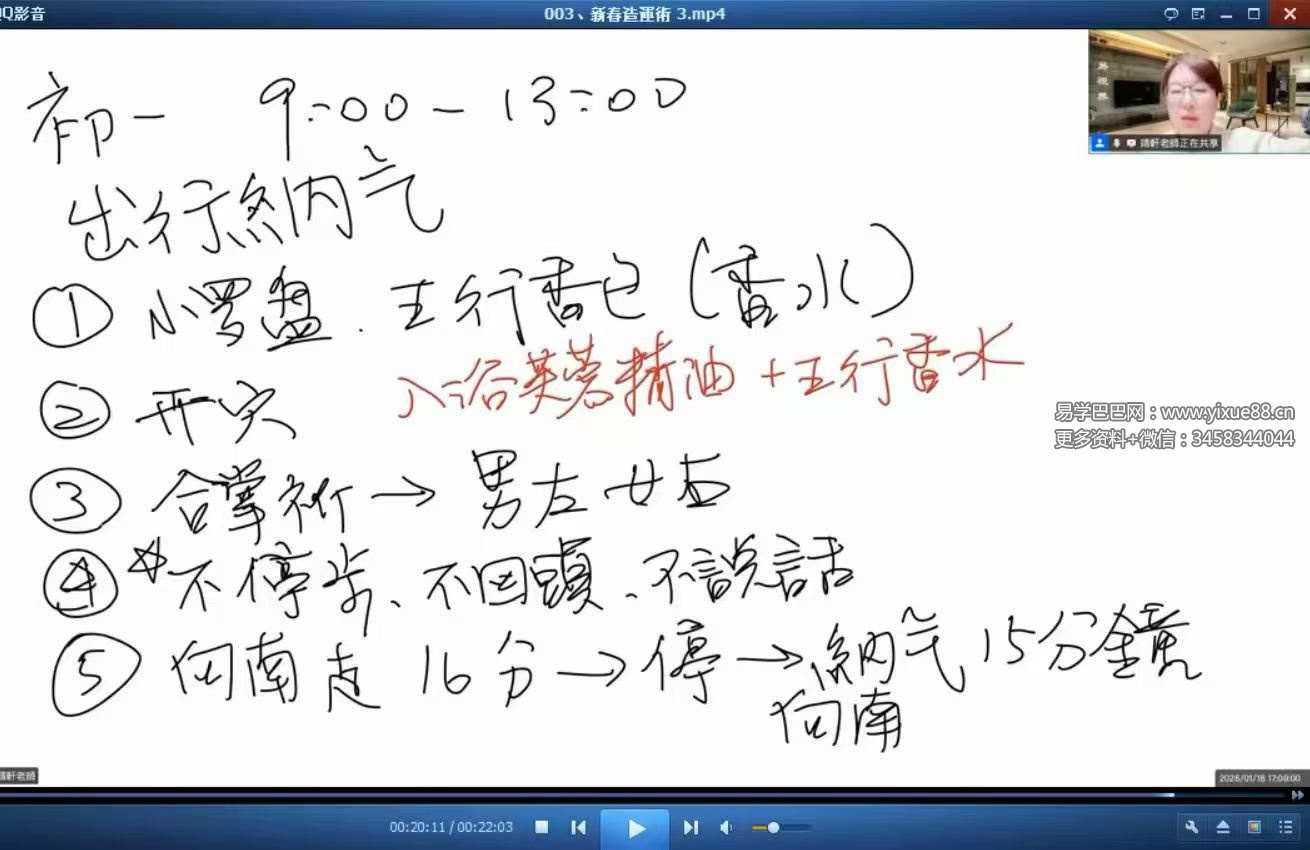 QQ影音
003、新春造運術 3.mp4
靖軒老師正在共享
初一 9:00-13:00
出行納气
① 小罗盘. 五行香包(香水)
入浴芙蓉精油+五行香水
易学巴巴网：www.yixue88.cn
更多资料+微信：3458344044
② 开灾
③ 合掌祈→男左女右
④ *不停步、不回頭、不說話
⑤ 向南走 16分→停→納气15分鐘
向南
靖軒老師
2026/01/18 17:09:00
00:20:11/00:22:03